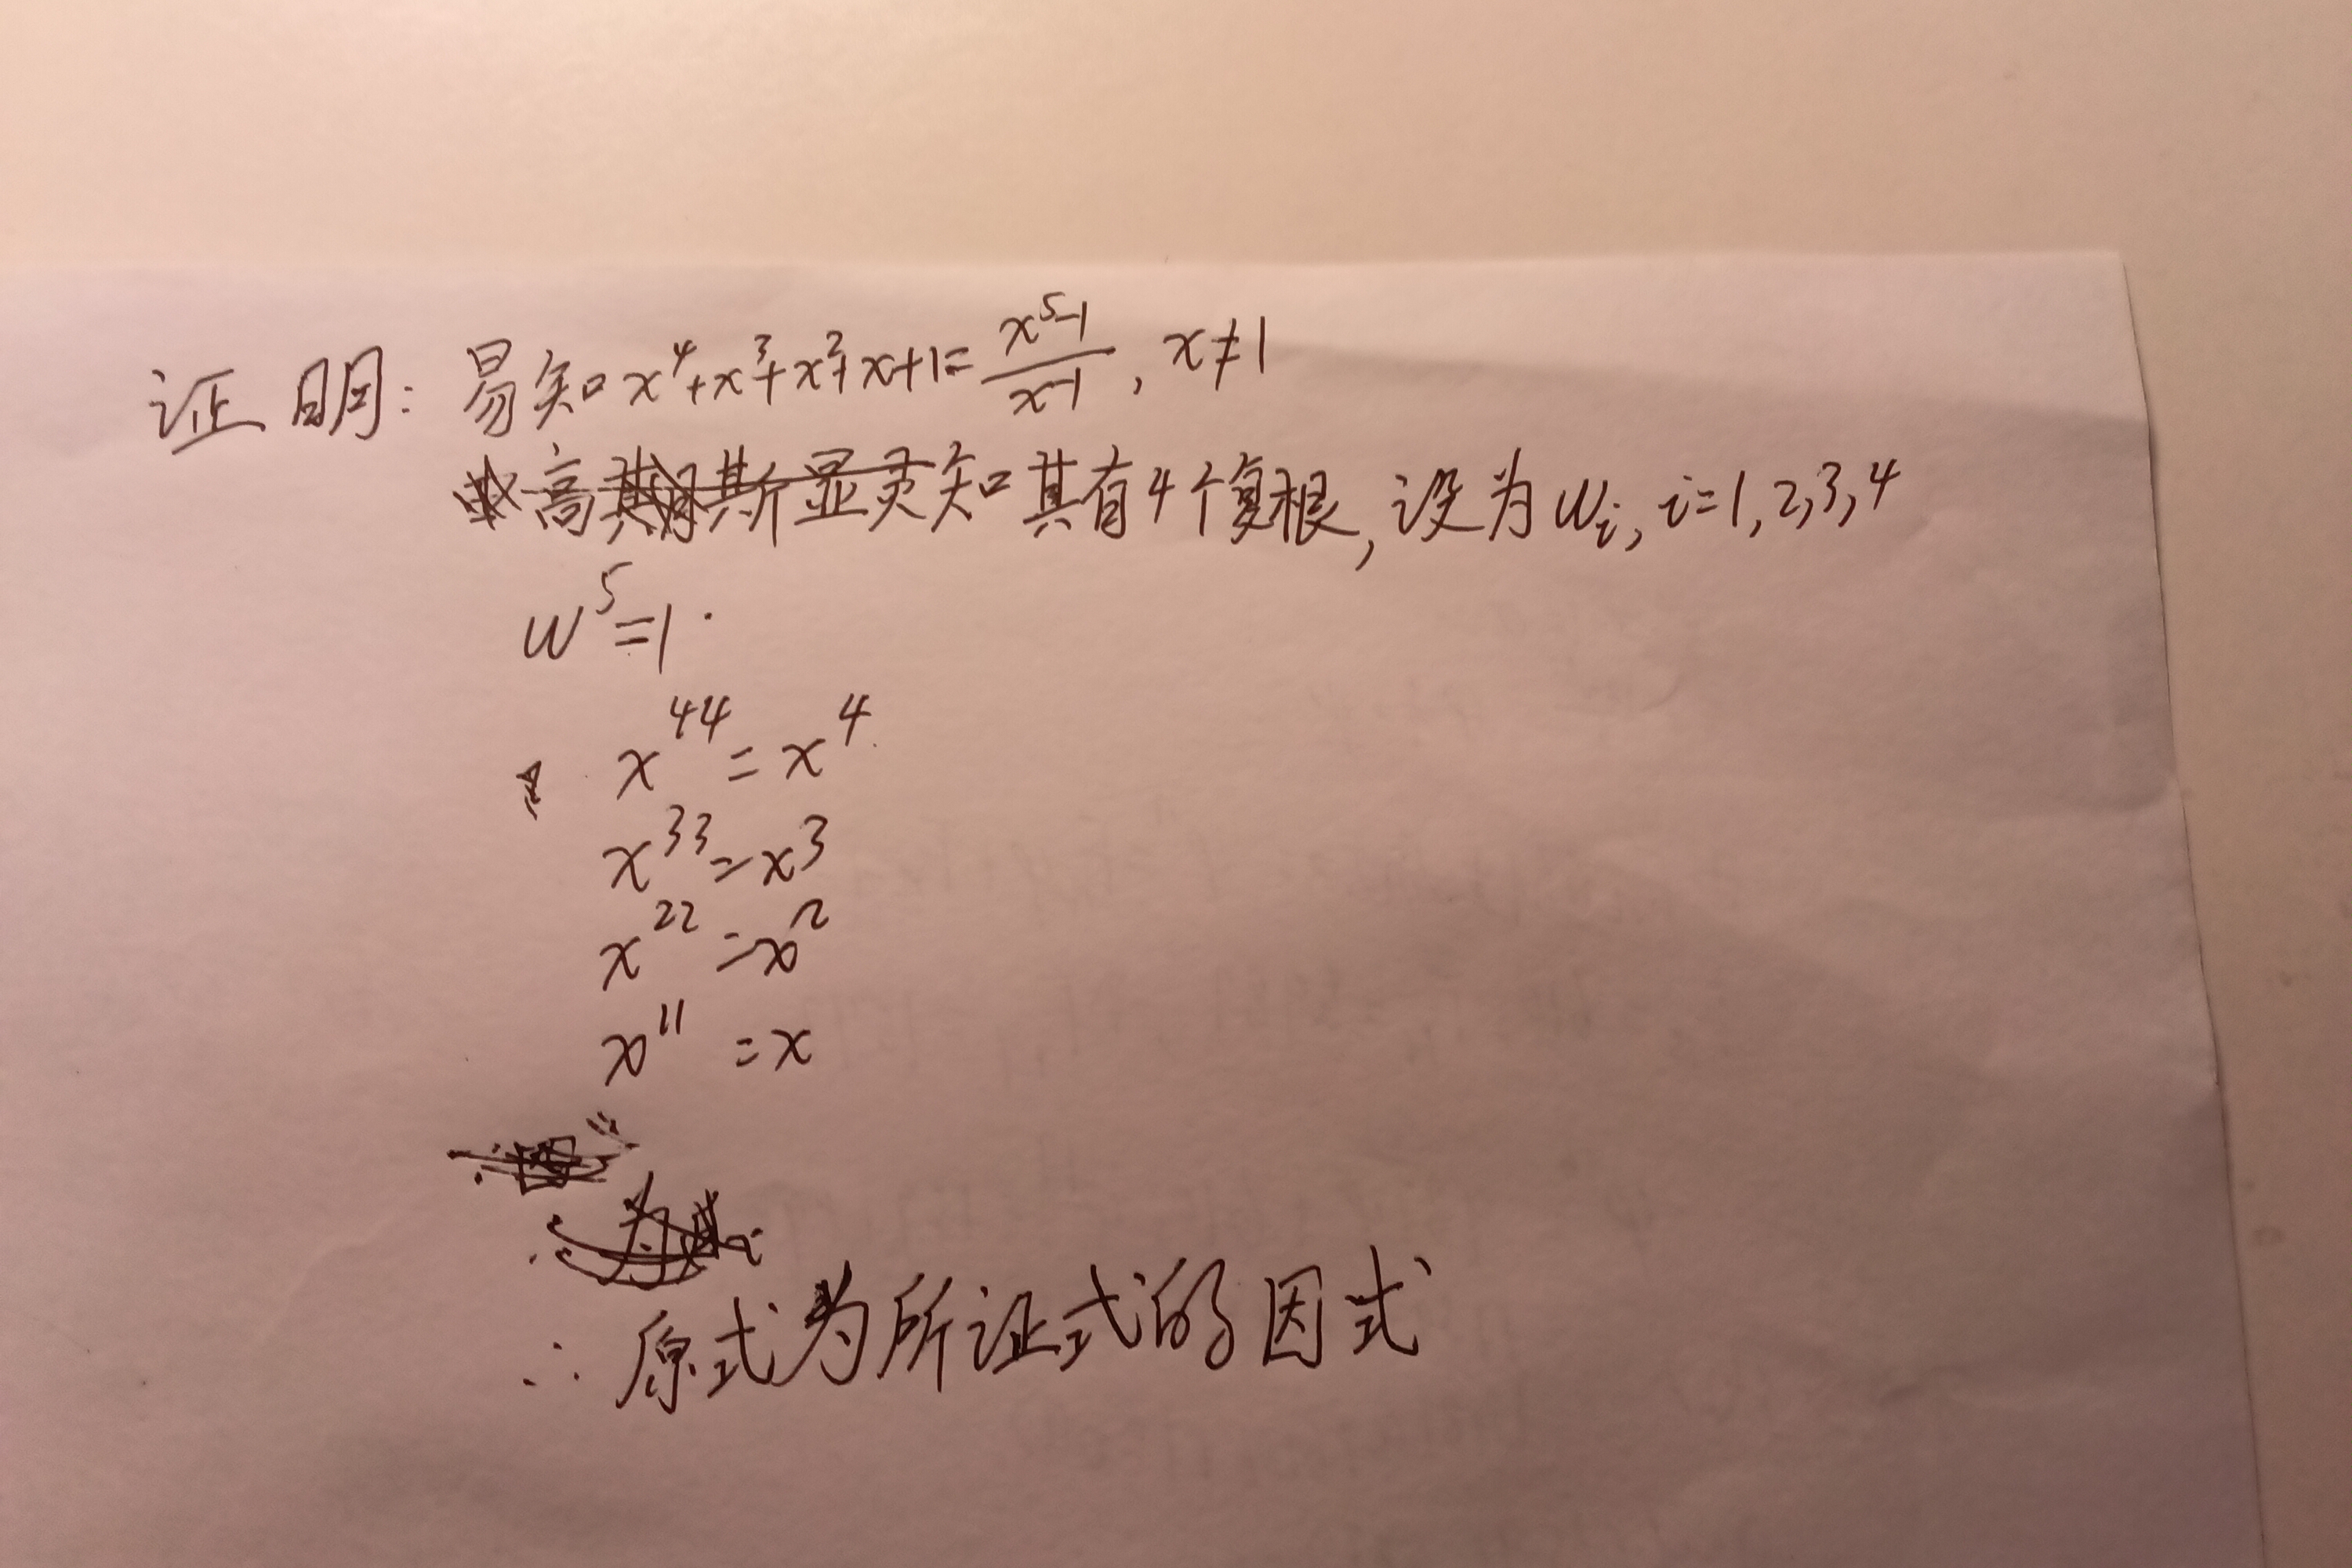 证明: 易知 x⁴+x³+x²+x+1= (x⁵-1)/(x-1), x≠1
高斯显灵知其有4个复根, 设为 wᵢ, i=1,2,3,4
w⁵=1.
x⁴⁴ = x⁴
x³³ = x³
x²² = x²
x¹¹ = x
∴ 原式为所证式的因式